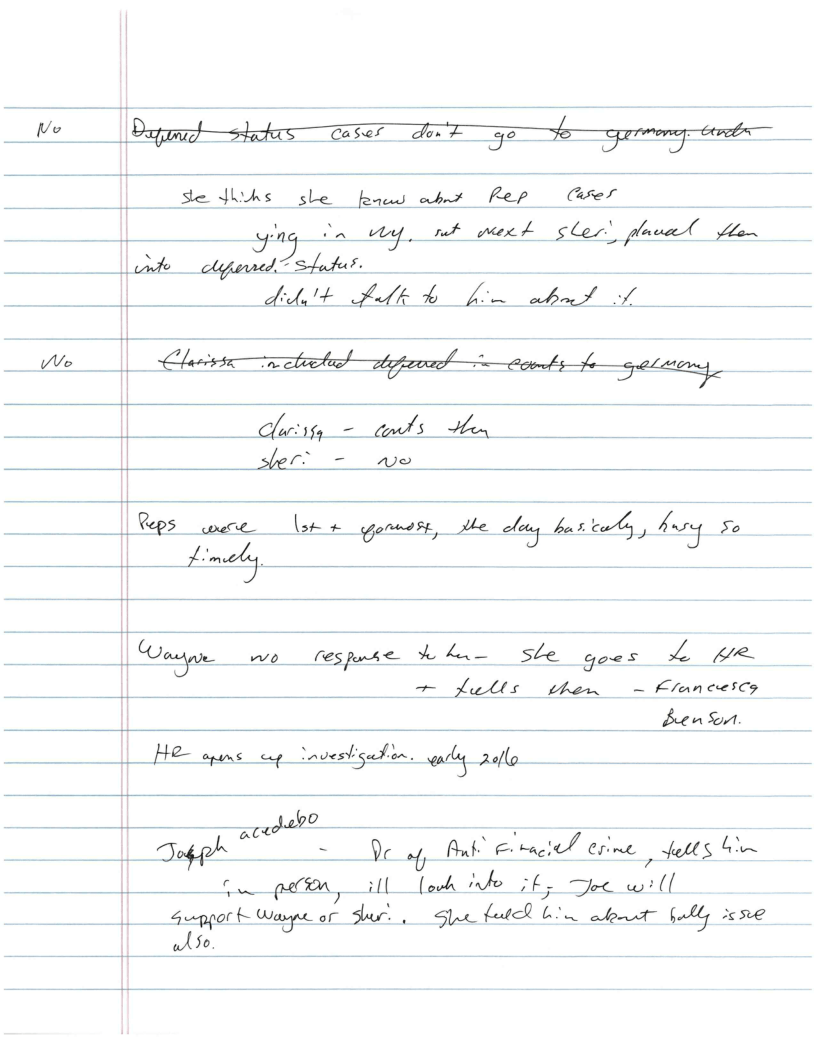 No Deferred status cases don't go to germany. under
she thinks she knew about Rep cases
in NY. but next sheri, placed then
into deferred. status.
didn't talk to him about it.
No Clarissa included deferred in counts to germany
Clarissa - counts then
sheri - NO
Reps were 1st + formost, the day basicaly, busy so
timely.
Wayne no response to her - she goes to HR
+ tells them - Francesca
Benson.
HR opens up investigation. early 2016
Joseph acedebo - Dr of Anti Finacial crime, tells him
in person, ill look into it, Joe will
support Wayne or sheri. She told him about bully issue
also.